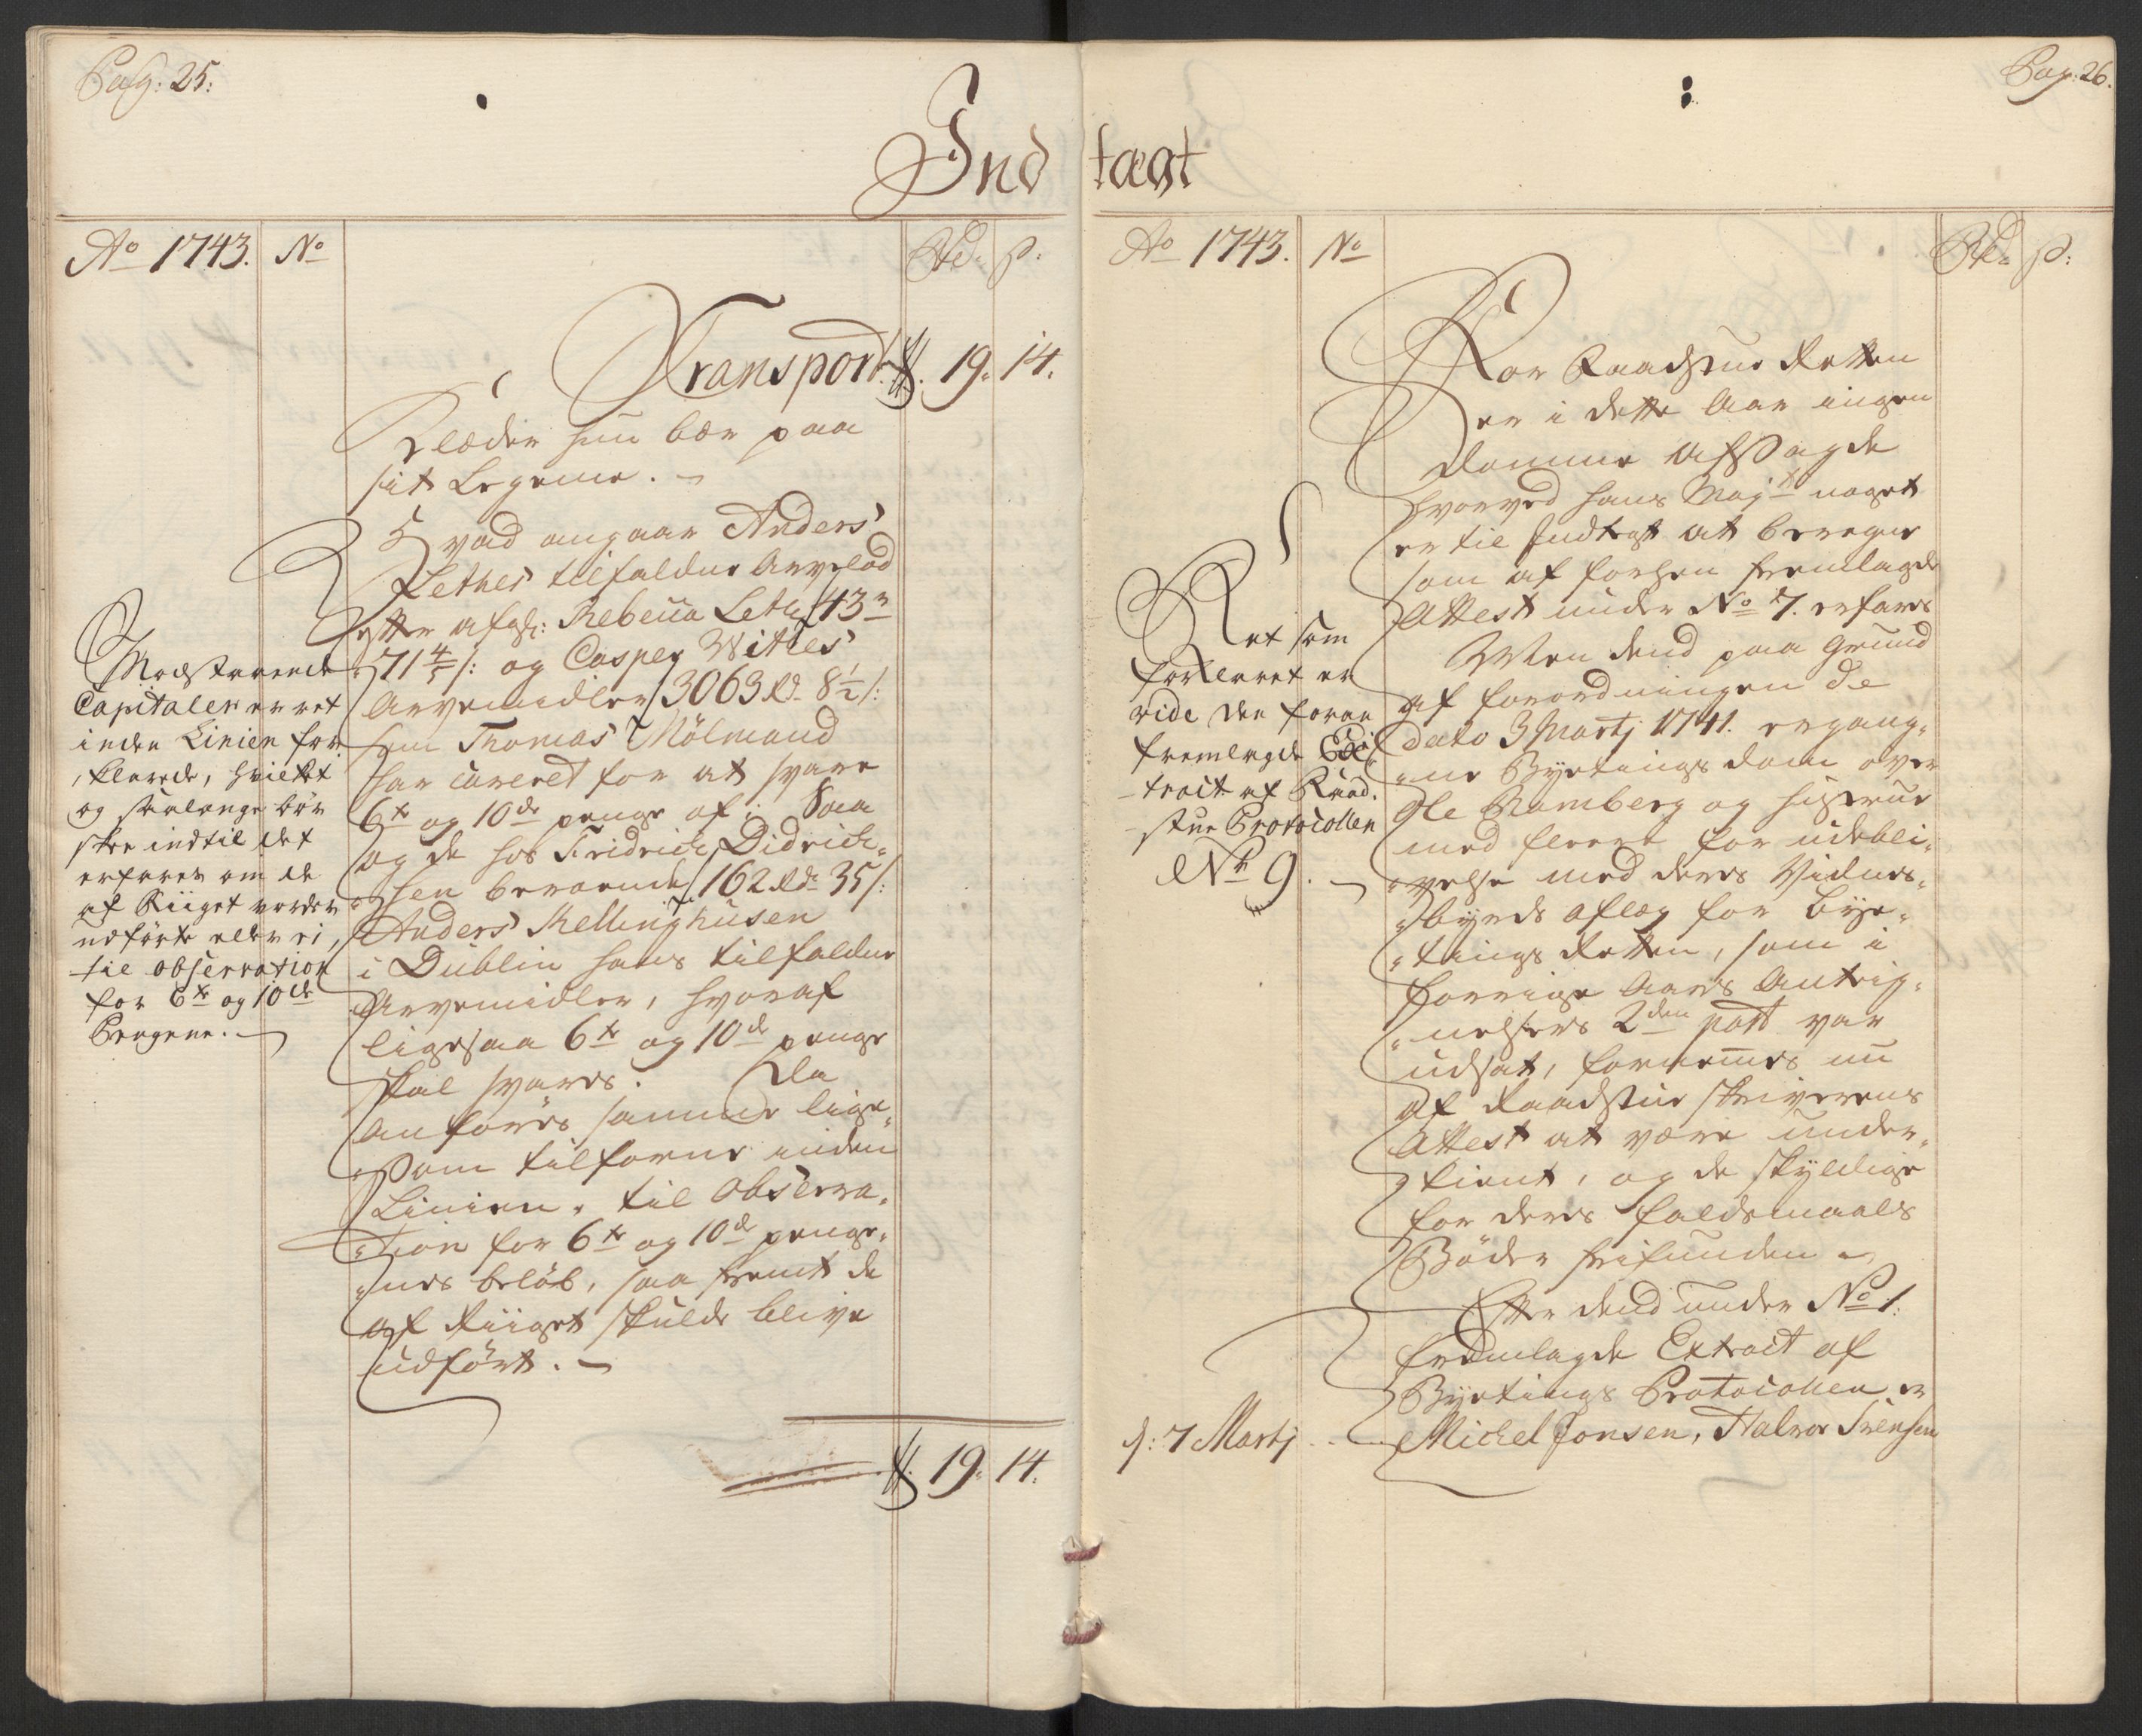 Pag: 25.
Ind
Ao 1743. No Rdr. s.
Transport. 19. 14.
Klæder hun bær paa
sit Legeme. –
Hvad angaar Anders
Lethes tilfaldne Arvelod
efter afgl: Rebecca Leth 43 r
71 4/5 s: og Casper Withes
Arvemidler 3063 Rd. 8 1/2 s:
som Thomas Mölmand
har caveret for at svare
6te og 10de penge af; Saa
og de hos Fridrich Didrich-
sen beroende 162 Rdr 35 s:
Anders Mellinghusen
i Dublin hans tilfaldne
Arvemidler, hvoraf
ligesaa 6te og 10de penge
skal svares. Da
anföres samme lige-
som tilforne inden
Linien, til Observa-
tion for 6te og 10de penge-
nes beløb, saa fremt de
af Riiget skulde blive
udført. –
19. 14.
Modstaaende
Capitaler er ret
inden Linien for
klarede, hvilket
og saalænge bör
skee indtil det
erfares om de
af Riiget vorder
udförte eller ei,
til observation
for 6te og 10de
Pengene. –
Pag: 26.
tægt
Ao 1743. No Rdr. s:
For Raadstue Retten
er i dette Aar ingen
Domme afsagde
hvorved hans Majt noget
er til Indtægt at beregne
som af forhen fremlagde
Attest under No 7. erfares
Men dend paa Grund
af forordningen de
dato 3 Martj 1741. ergang-
ne Byetings dom over
Ole Ramberg og hustrue
med fleere for udebli-
velse med deres Vidnes-
byrds aflæg for Bye-
tings Retten, som i
forrige Aars Anteig-
nelsers 2den post var
udsat, fornemes nu
af Raadstue skriverens
Attest at være under-
kient, og de skyldige
for deres faldsmaals
Böder frifunden –
Efter dend under No 1.
fremlagde Extract af
Byetings Protocollen er
d: 7 Martj Michel Jonsen, Halvor Svensen
Ret som
forklaret er
vide den foran
fremlagde Ex-
tract af Raad-
stue Protocollen
No 9. –